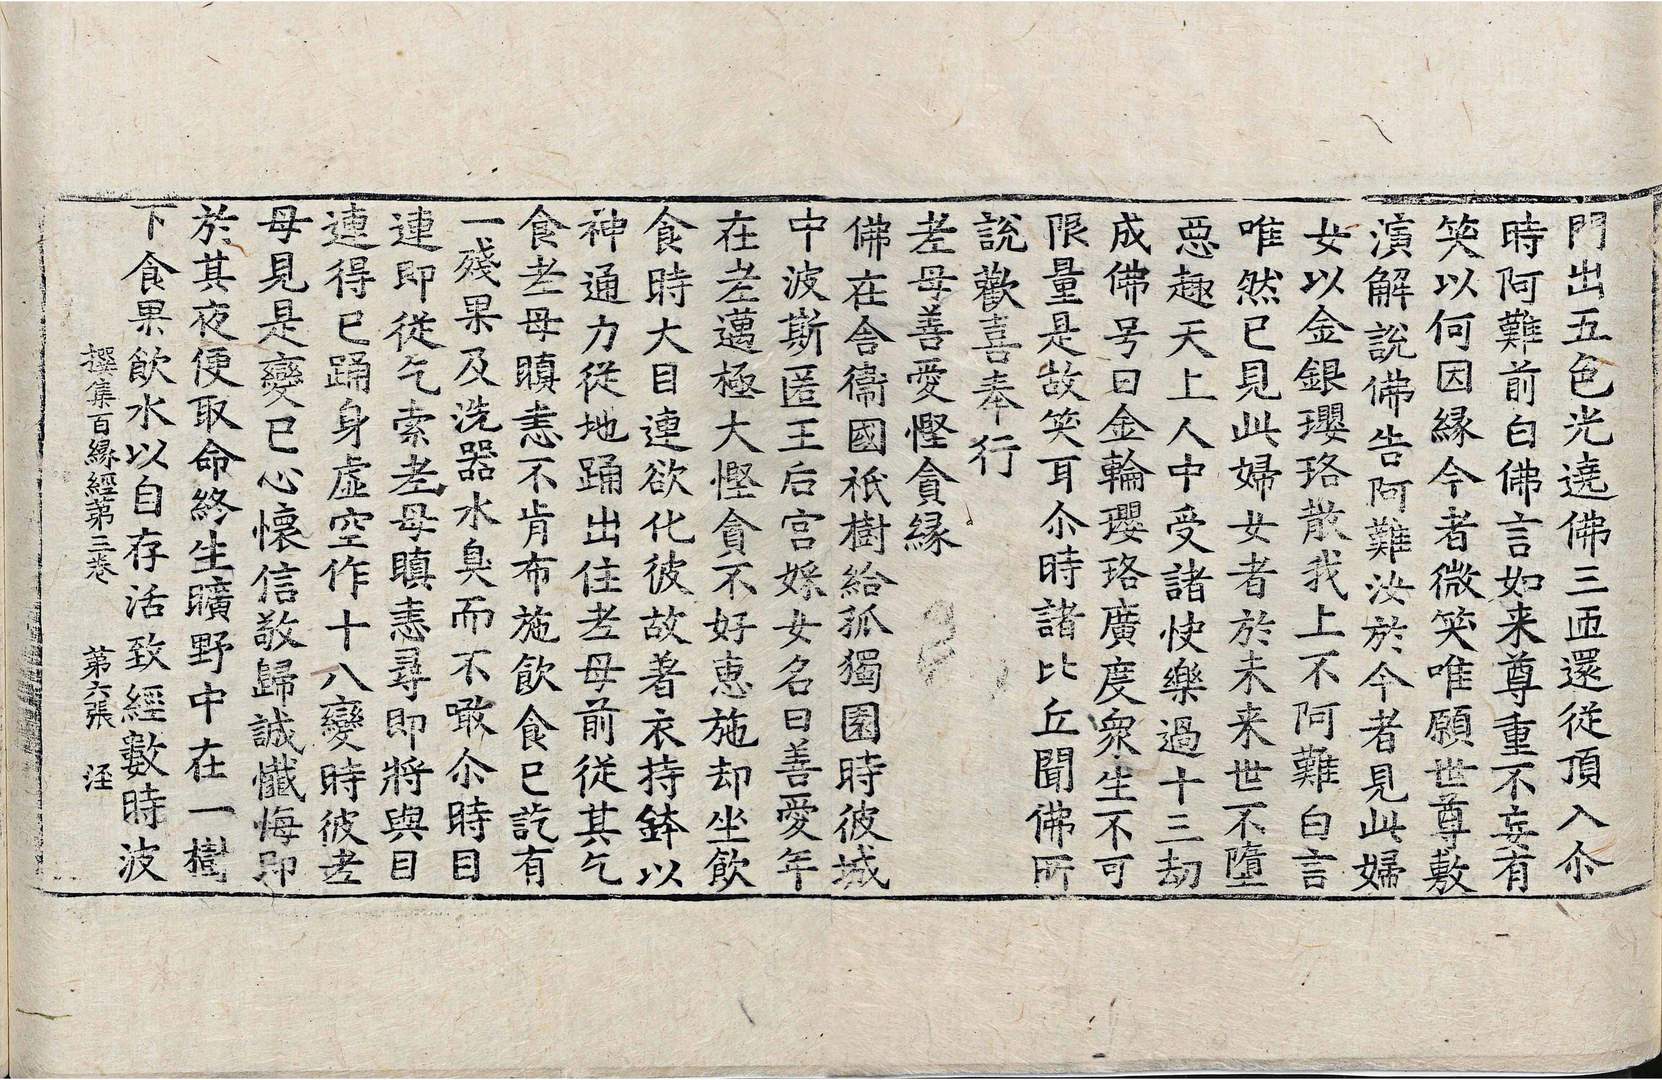 門出五色光遶佛三匝還従頂入尒
時阿難前白佛言如来尊重不妄有
笑以何因縁今者微笑唯願世尊敷
演解說佛告阿難汝於今者見此婦
女以金銀瓔珞散我上不阿難白言
唯然已見此婦女者於未来世不墮
惡趣天上人中受諸快樂過十三劫
成佛号曰金輪瓔珞廣度衆生不可
限量是故笑耳尒時諸比丘聞佛所
說歡喜奉行
老母善愛慳貪縁
佛在舎衞國祇樹給孤獨園時彼城
中波斯匿王后宫婇女名曰善愛年
在老邁極大慳貪不好恵施却坐飲
食時大目連欲化彼故著衣持鉢以
神通力従地踊出住老母前従其乞
食老母瞋恚不肯布施飲食已訖有
一殘果及洗器水臭而不噉尒時目
連即従乞索老母瞋恚尋即將與目
連得已踊身虛空作十八變時彼老
母見是變已心懷信敬歸誠懺悔即
於其夜便取命終生曠野中在一樹
下食果飲水以自存活致經數時波
撰集百縁經第三卷 第六張 注